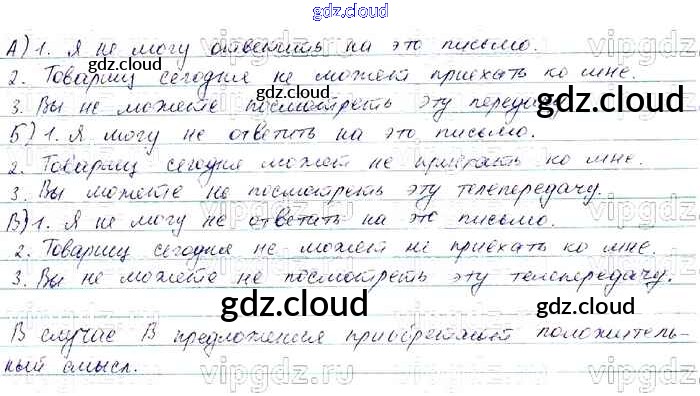 gdz.cloud
А) 1. Я не могу ответить на это письмо.
2. Товарищ сегодня не может приехать ко мне.
3. Вы не можете посмотреть эту передачу
Б) 1. Я могу не ответить на это письмо.
2. Товарищ сегодня может не приехать ко мне.
3. Вы можете не посмотреть эту телепередачу.
В) 1. Я не могу не ответить на это письмо.
2. Товарищ сегодня не может не приехать ко мне.
3. Вы не можете не посмотреть эту телепередачу.
В случае В предложения приобретают положитель-
ный смысл.
gdz.cloud
gdz.cloud
gdz.cloud
gdz.cloud
gdz.cloud
gdz.cloud
gdz.cloud
vipgdz.ru